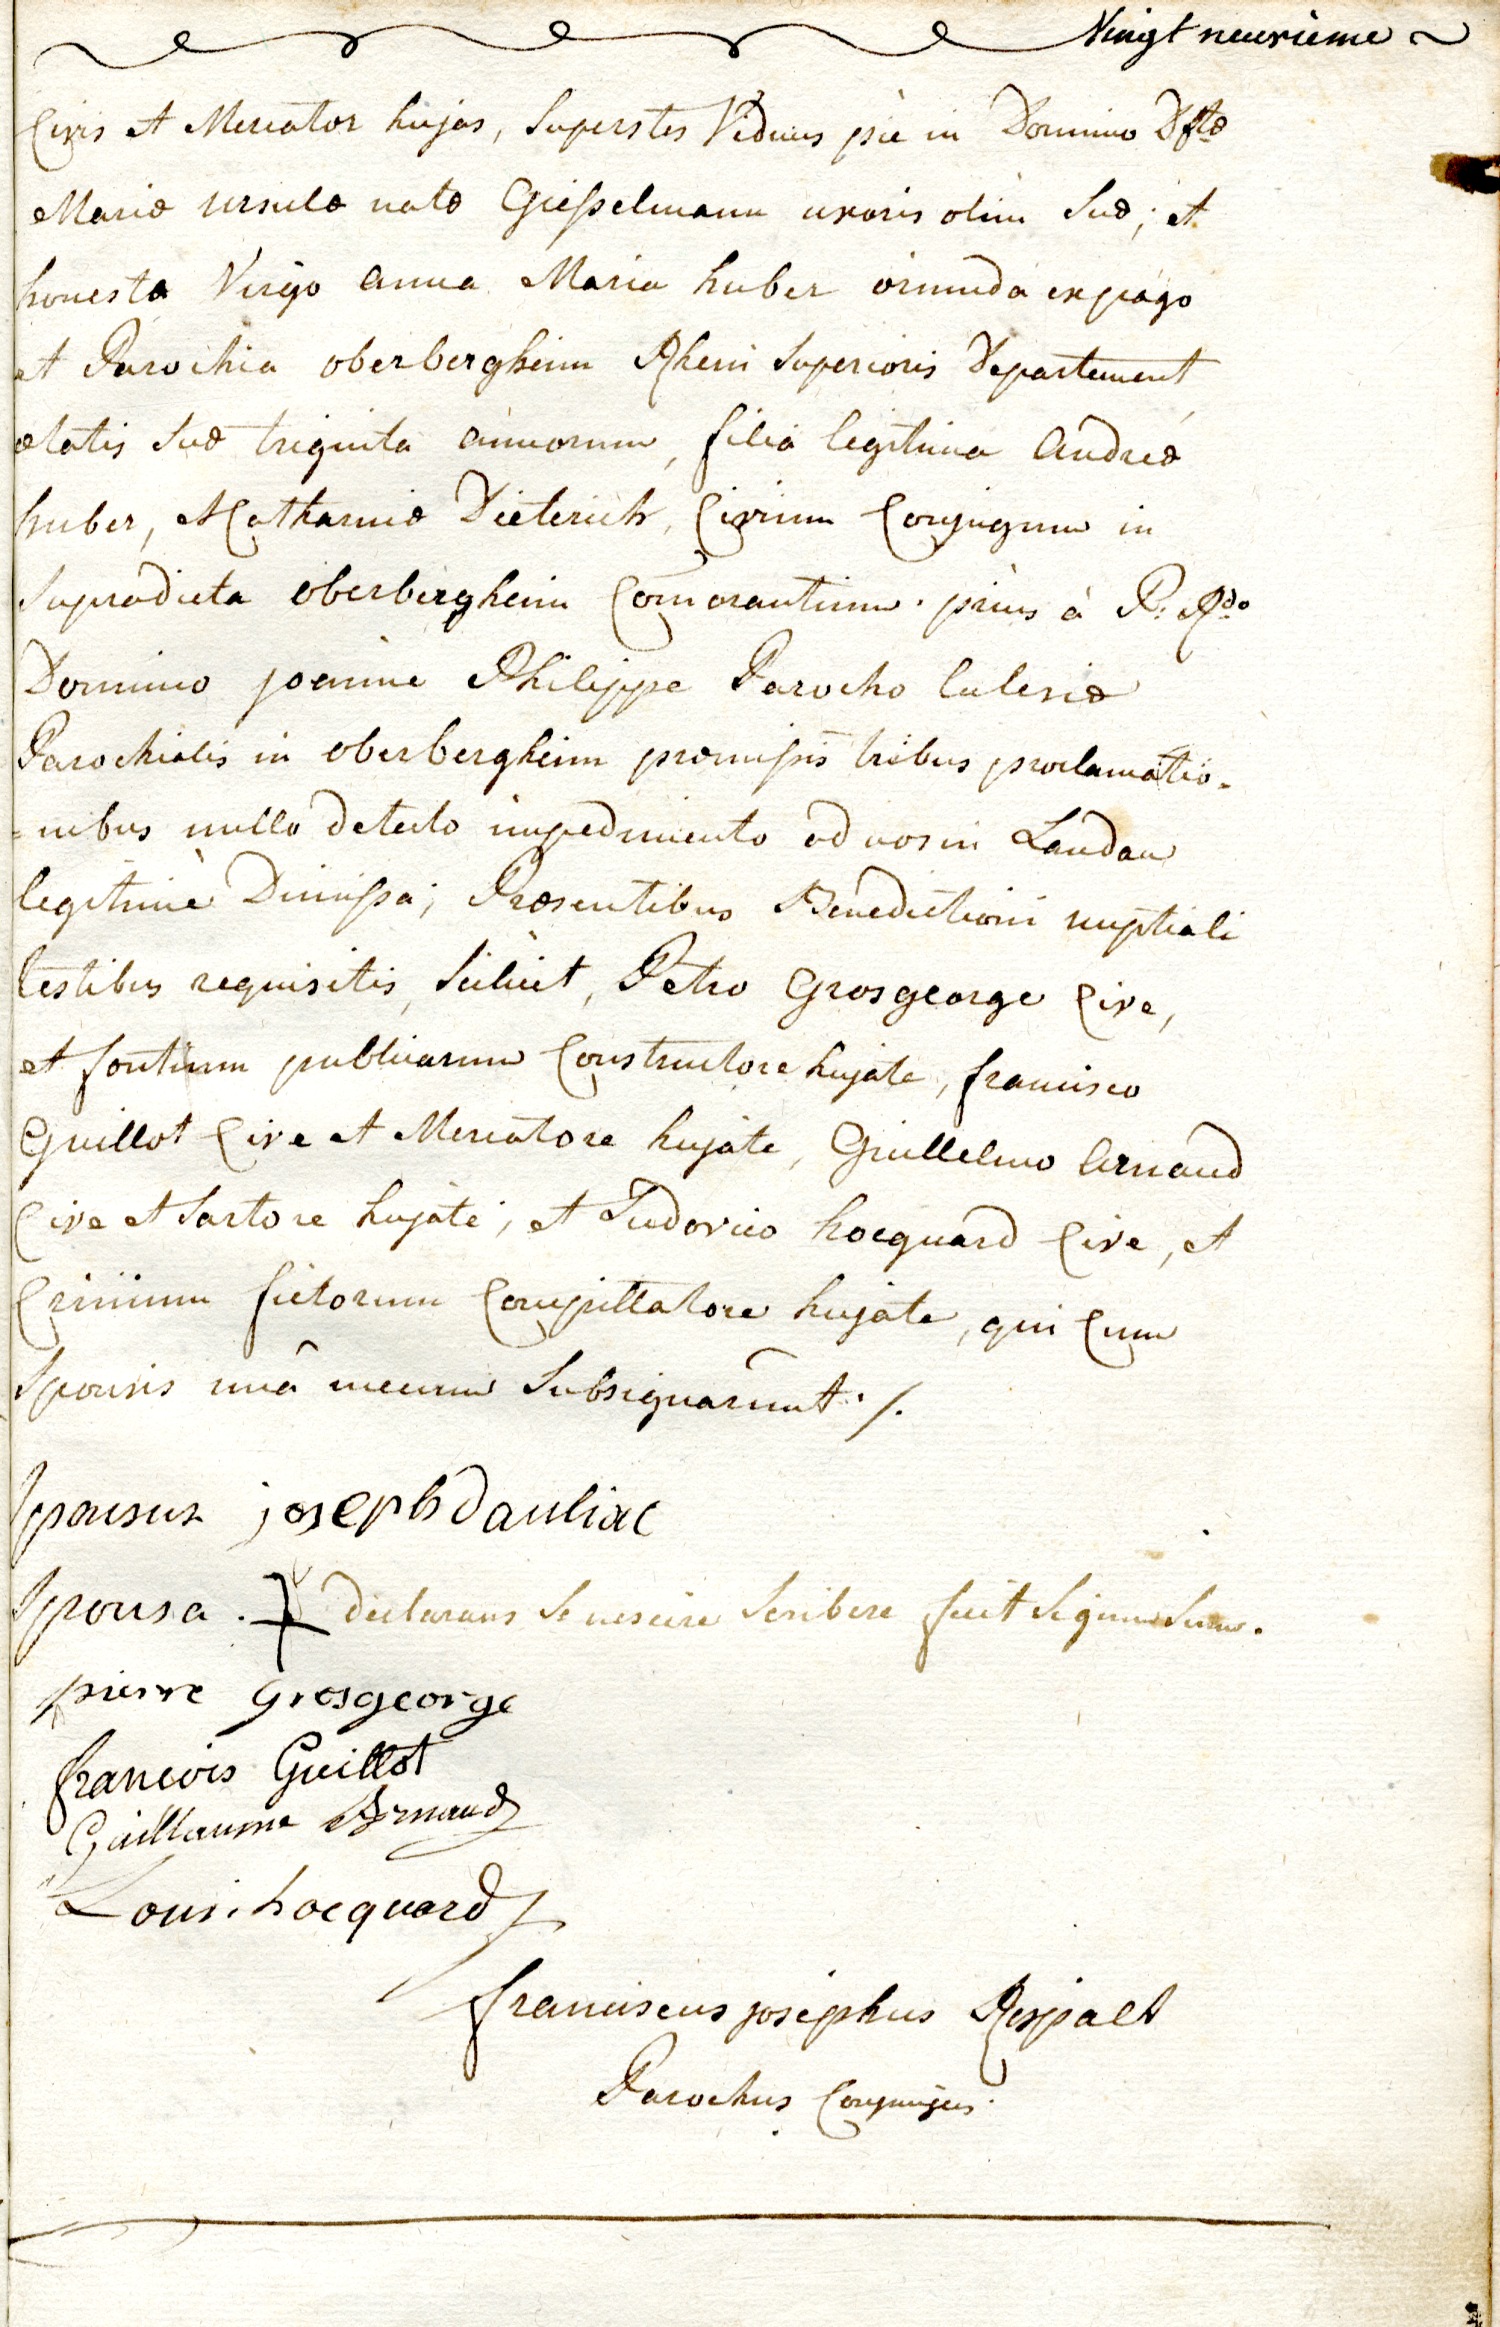 Vingt neuvième
Civis et Mercator hujas, Superstes Viduus piè in Domino Dftæ
Mariæ ursulæ natæ Giesselmann uxoris olim Suæ; et
honesta Virgo anna Maria huber oriunda ex pago
et Parochia oberbergheim Rheni Superioris Departement
ætatis Suæ triginta annorum, filia legitima Andreæ
huber, et Catharinæ Dieterich, Civium Conjugum in
Supradicta oberbergheim Com̄orantium. priùs à P. Rdo
Domino joanne Philippe Parocho Eclesiæ
Parochialis in oberbergheim præmissis tribus proclamatio-
=nibus nullo detecto impedimento ad nos in Landau
legitimè Dimissa; Præsentibus Benedictioni nuptiali
testibus requisitis, Scilicèt, Petro Grosgeorge Cive,
et fontium publicarum Constructore hujate, francisco
Guillot Cive et Mercatore hujate, Guillelmo Arnaud
Cive et Sartore hujate, et Ludovico hocquard Cive, et
Crinium fictorum Compillatore hujate, qui Cum
Sponsis unâ mecum Subsignarunt ./.
Sponsus josephdauliac
Sponsa. declarans Se nescire Scribere fecit Signum Suum.
pierre grosgeorge
francois Guillot
Guillaume Arnaud
Louis hocquard
franciscus josephus Respalt
Parochus Conjungens.